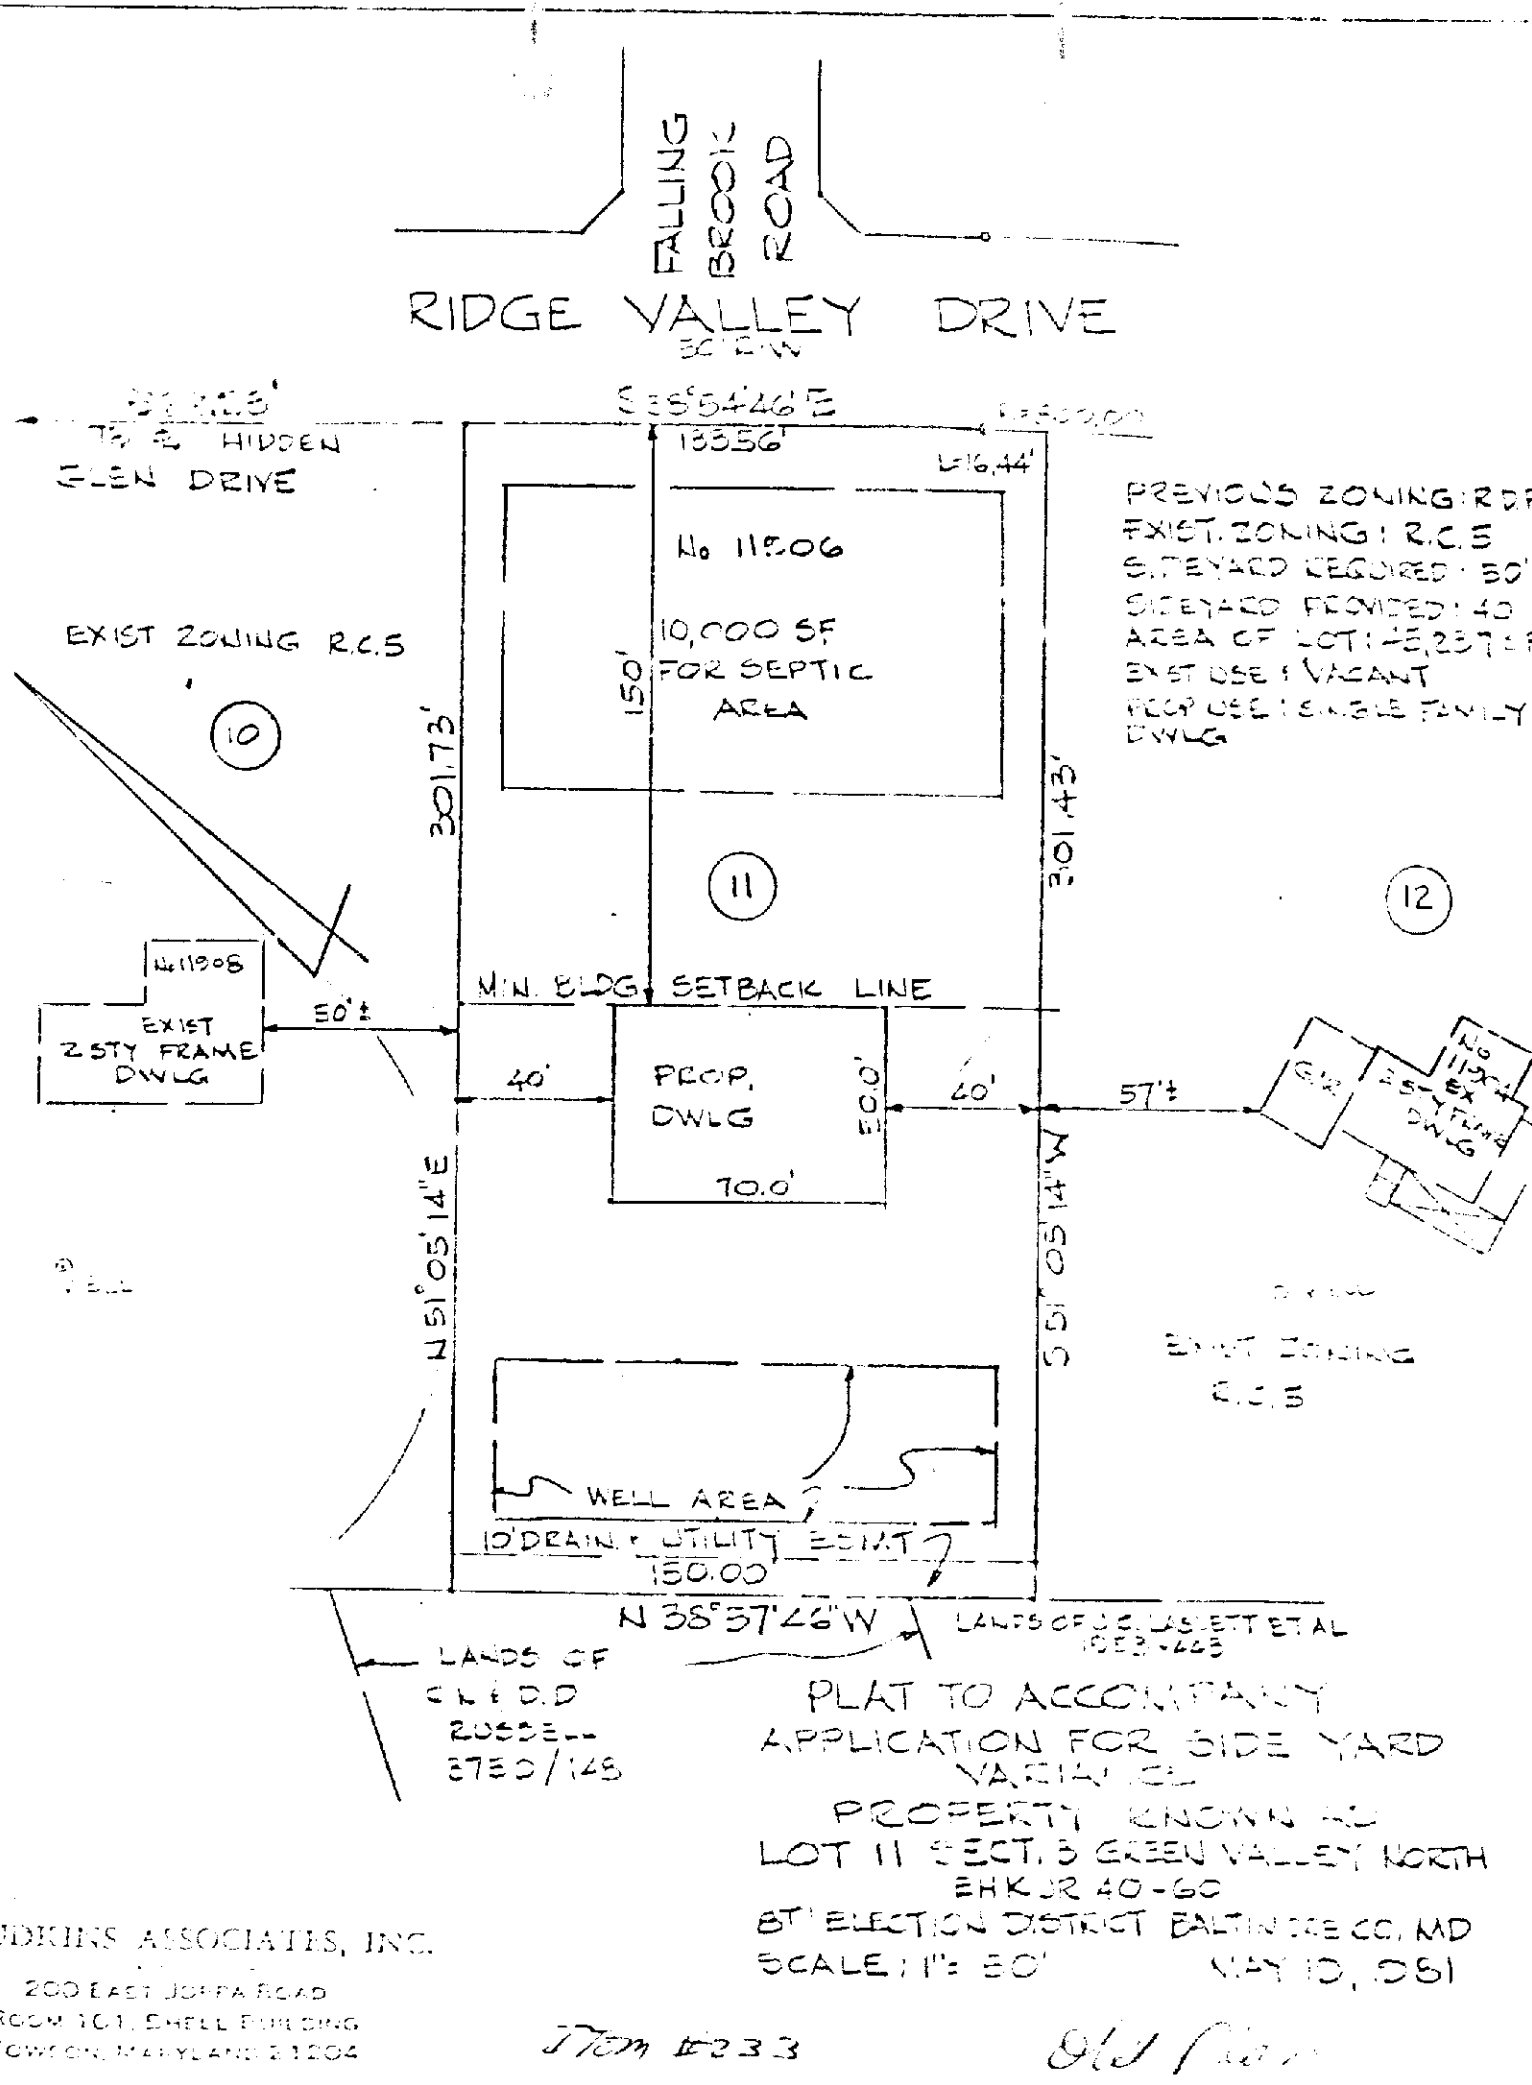 FALLING
BROOK
ROAD
RIDGE VALLEY DRIVE
R/W
HIDDEN
GLEN DRIVE
S 38°54'46" E
133.56'
L=16.44'
PREVIOUS ZONING: R.D.P
EXIST. ZONING: R.C.5
SIDEYARD REQUIRED: 50'
SIDEYARD PROVIDED: 40
AREA OF LOT: 45,237 S.F
EXIST USE: VACANT
PROP USE: SINGLE FAMILY
DWLG
No 11906
10,000 SF
FOR SEPTIC
AREA
150'
EXIST ZONING R.C.5
10
301.73'
301.43'
11
12
No 11908
EXIST
2 STY FRAME
DWLG
50'±
MIN. BLDG SETBACK LINE
40'
PROP.
DWLG
50.0'
70.0'
40'
57'±
GAR
No
11904
EX
2 STY FRAME
DWLG
N 51° 05' 14" E
S 51° 05' 14" W
WELL
EXIST ZONING
R.C.5
WELL AREA
10' DRAIN & UTILITY ESMT
150.00'
N 38°57'46" W
LANDS OF
D.D
RUSSELL
LANDS OF ET AL
PLAT TO ACCOMPANY
APPLICATION FOR SIDE YARD
VARIANCE
PROPERTY KNOWN AS
LOT 11 SECT. 3 GREEN VALLEY NORTH
EHK JR 40-60
8TH ELECTION DISTRICT BALTIMORE CO. MD
SCALE: 1"= 50'
MAY 10, 1981
UDKINS ASSOCIATES, INC.
200 EAST JOPPA ROAD
ROOM 101, SHELL BUILDING
TOWSON, MARYLAND 21204
Item #233
Old Plan